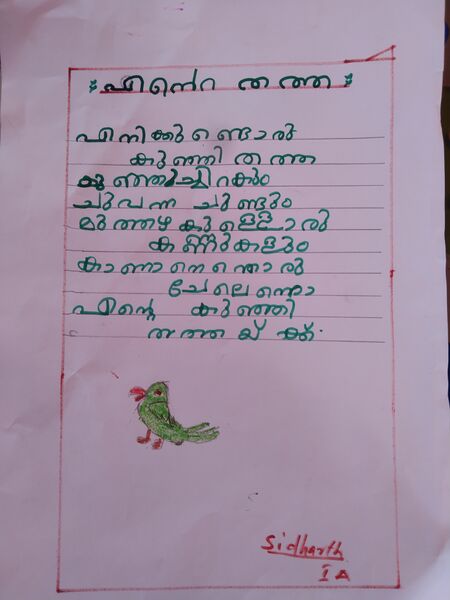 എന്റെ തത്ത
എനിക്കുണ്ടൊരു
കുഞ്ഞിതത്ത
കുഞ്ഞുചിറകും
ചുവന്ന ചുണ്ടും
മുത്തഴകുള്ളൊരു
കണ്ണുകളും
കാണാനെന്തൊരു
ചേലെന്നോ
എന്റെ കുഞ്ഞി
തത്തയ്ക്ക്.
Sidharth
I A